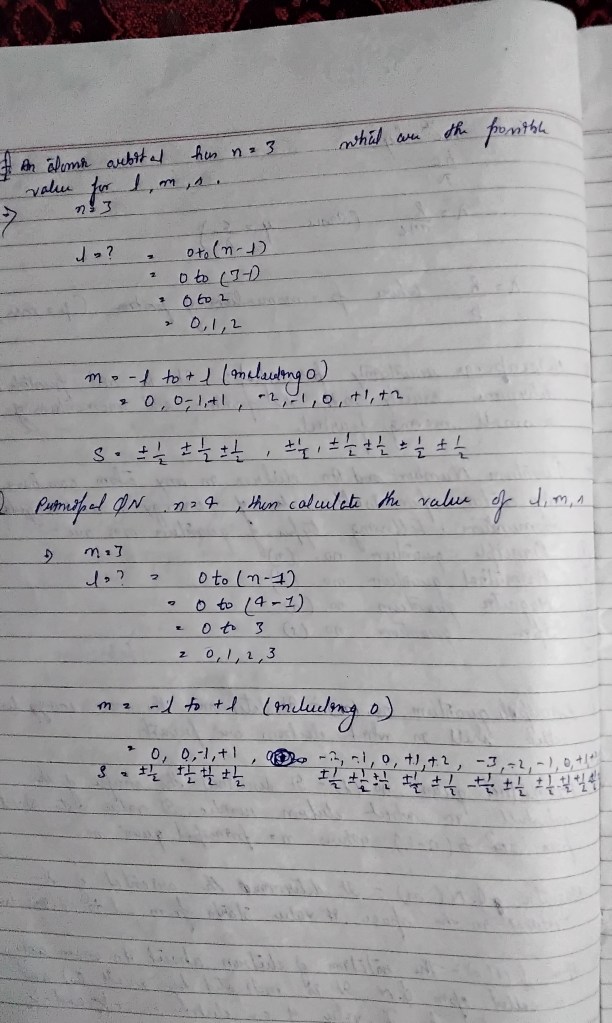 An atomic orbital has n = 3 what are the possible
value for l, m, s.
⇒ n = 3
l = ? = 0 to (n-1)
= 0 to (3-1)
= 0 to 2
= 0, 1, 2
m = -l to +l (including 0)
= 0, 0, -1, +1, -2, -1, 0, +1, +2
S = ±1/2 ±1/2 ±1/2, ±1/2, ±1/2 ±1/2 ±1/2 ±1/2
Principal QN n = 4, then calculate the value of l, m, s
⇒ n = 3
l = ? = 0 to (n-1)
= 0 to (4-1)
= 0 to 3
= 0, 1, 2, 3
m = -l to +l (including 0)
= 0, 0, -1, +1, -2, -1, 0, +1, +2, -3, -2, -1, 0, +1
S = ±1/2 ±1/2 ±1/2 ±1/2 ±1/2 ±1/2 ±1/2 ±1/2 ±1/2 ±1/2 ±1/2 ±1/2 ±1/2 ±1/2